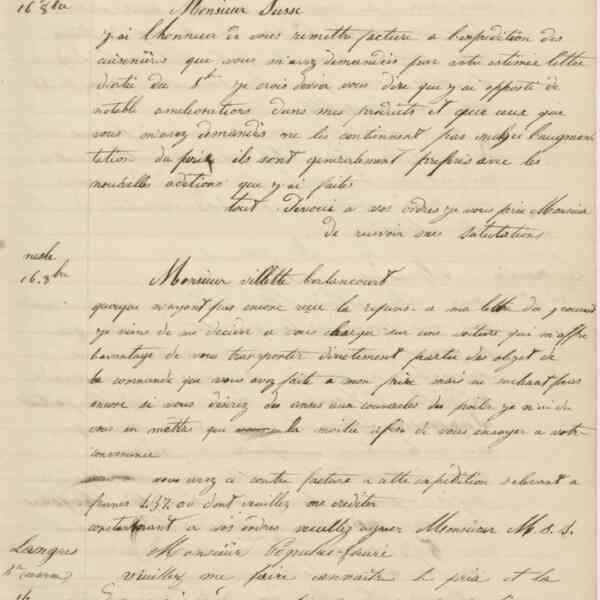 16 8bre
Monsieur Susse
j'ai l'honneur de vous remettre facture a l'expedition des
cuisinières que vous m'avez demandées par votre estimée lettre
datée du 8 je crois devoir vous dire que j'ai apporté de
notable améliorations dans mes produits et que ceux que
vous m'avez demandés ne les contiennent pas malgré l'augmen
tation du prix ils sont generalement preferés avec les
nouvelles aditions que j'ai faites
tout dévoué a vos ordres je vous prie Monsieur
de recevoir mes salutations
nesle
16. 8bre
Monsieur villette
quoique n'ayant pas encore recu la reponse a ma lettre du courant
je viens de me decider a vous charger sur une voiture qui m'offre
l'avantage de vous transporter directement partie des objet de
la commande que vous avez faite a mon père mais ne sachant pas
encore si vous désirez des anses aux couvercles des poëles je n'ai du
vous en mettre que la moitié afin de vous envoyer a votre
convenance
vous avez ci contre facture a cette expédition s'elevant a
francs 437.00 dont veuillez me crediter
constamment a vos ordres veuillez agreer Monsieur M. S. S.
Langres
Monsieur Populus-faure
veuillez me faire connaitre le prix et la
16